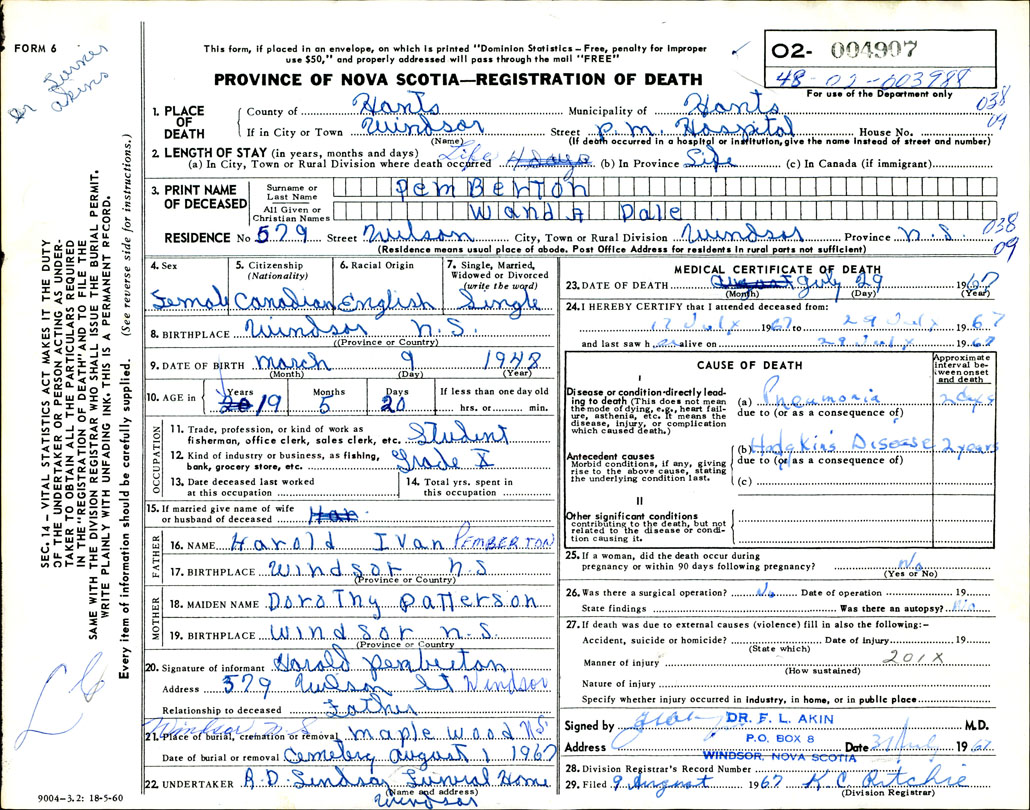 FORM 6
This form, if placed in an envelope, on which is printed "Dominion Statistics – Free, penalty for improper
use $50," and properly addressed will pass through the mail "FREE"
PROVINCE OF NOVA SCOTIA—REGISTRATION OF DEATH
O2- 004907
48-02-003988
For use of the Department only
038
09
1. PLACE OF DEATH
County of Hants Municipality of Hants
If in City or Town Windsor Street P.M. Hospital House No.
(Name) (If death occurred in a hospital or institution, give the name instead of street and number)
2. LENGTH OF STAY (in years, months and days)
(a) In City, Town or Rural Division where death occurred Life 4 days (b) In Province Life (c) In Canada (if immigrant)
3. PRINT NAME OF DECEASED
Surname or Last Name PemBerton
All Given or Christian Names WandA Dale
RESIDENCE No 579 Street Wilson City, Town or Rural Division Windsor Province N.S.
(Residence means usual place of abode. Post Office Address for residents in rural parts not sufficient)
038
09
4. Sex Female
5. Citizenship (Nationality) Canadian
6. Racial Origin English
7. Single, Married, Widowed or Divorced (write the word) Single
8. BIRTHPLACE Windsor N.S.
(Province or County)
9. DATE OF BIRTH March 9 1948
(Month) (Day) (Year)
10. AGE in Years 20 19 Months 5 Days 20 If less than one day old hrs. or min.
OCCUPATION
11. Trade, profession, or kind of work as fisherman, office clerk, sales clerk, etc. Student
12. Kind of industry or business, as fishing, bank, grocery store, etc. Grade X
13. Date deceased last worked at this occupation
14. Total yrs. spent in this occupation
15. If married give name of wife or husband of deceased Har
FATHER
16. NAME Harold Ivan PEMBERTON
17. BIRTHPLACE Windsor N.S
(Province or Country)
MOTHER
18. MAIDEN NAME Dorothy Patterson
19. BIRTHPLACE Windsor N.S.
(Province or Country)
20. Signature of informant Harold Pemberton
Address 579 Wilson St Windsor
Relationship to deceased Father
Windsor N.S
21. Place of burial, cremation or removal maple wood NS
Date of burial or removal Cemetery August 1 1967
22. UNDERTAKER A.D. Lindsay Funeral Home
(Name and address)
Windsor
9004–3.2: 18-5-60
MEDICAL CERTIFICATE OF DEATH
23. DATE OF DEATH August July 29 1967
(Month) (Day) (Year)
24. I HEREBY CERTIFY that I attended deceased from:
17 July 1967 to 29 July 1967
and last saw h alive on 29 July 1967
CAUSE OF DEATH
Approximate interval between onset and death
I
Disease or condition directly leading to death (This does not mean the mode of dying, e.g., heart failure, asthenia, etc. It means the disease, injury, or complication which caused death.)
(a) Pneumonia 2 days
due to (or as a consequence of)
Antecedent causes
Morbid conditions, if any, giving rise to the above cause, stating the underlying condition last.
(b) Hodgkin's Disease 2 years
due to (or as a consequence of)
(c)
II
Other significant conditions
contributing to the death, but not related to the disease or condition causing it.
25. If a woman, did the death occur during
pregnancy or within 90 days following pregnancy? No
(Yes or No)
26. Was there a surgical operation? No Date of operation 19
State findings Was there an autopsy? No
27. If death was due to external causes (violence) fill in also the following:–
Accident, suicide or homicide? Date of injury 19
(State which)
Manner of injury 201X
(How sustained)
Nature of injury
Specify whether injury occurred in industry, in home, or in public place
Signed by DR. F. L. AKIN M.D.
P.O. BOX 8
Address WINDSOR, NOVA SCOTIA Date 31 July 1967
28. Division Registrar's Record Number
29. Filed 9 August 1967 K C Ritchie
(Division Registrar)
SEC. 14 – VITAL STATISTICS ACT MAKES IT THE DUTY
OF THE UNDERTAKER OR PERSON ACTING AS UNDERTAKER
TO OBTAIN ALL THE PARTICULARS REQUIRED
IN THE "REGISTRATION OF DEATH" AND TO FILE THE
SAME WITH THE DIVISION REGISTRAR WHO SHALL ISSUE THE BURIAL PERMIT.
WRITE PLAINLY WITH UNFADING INK. THIS IS A PERMANENT RECORD.
Every item of information should be carefully supplied. (See reverse side for instructions.)